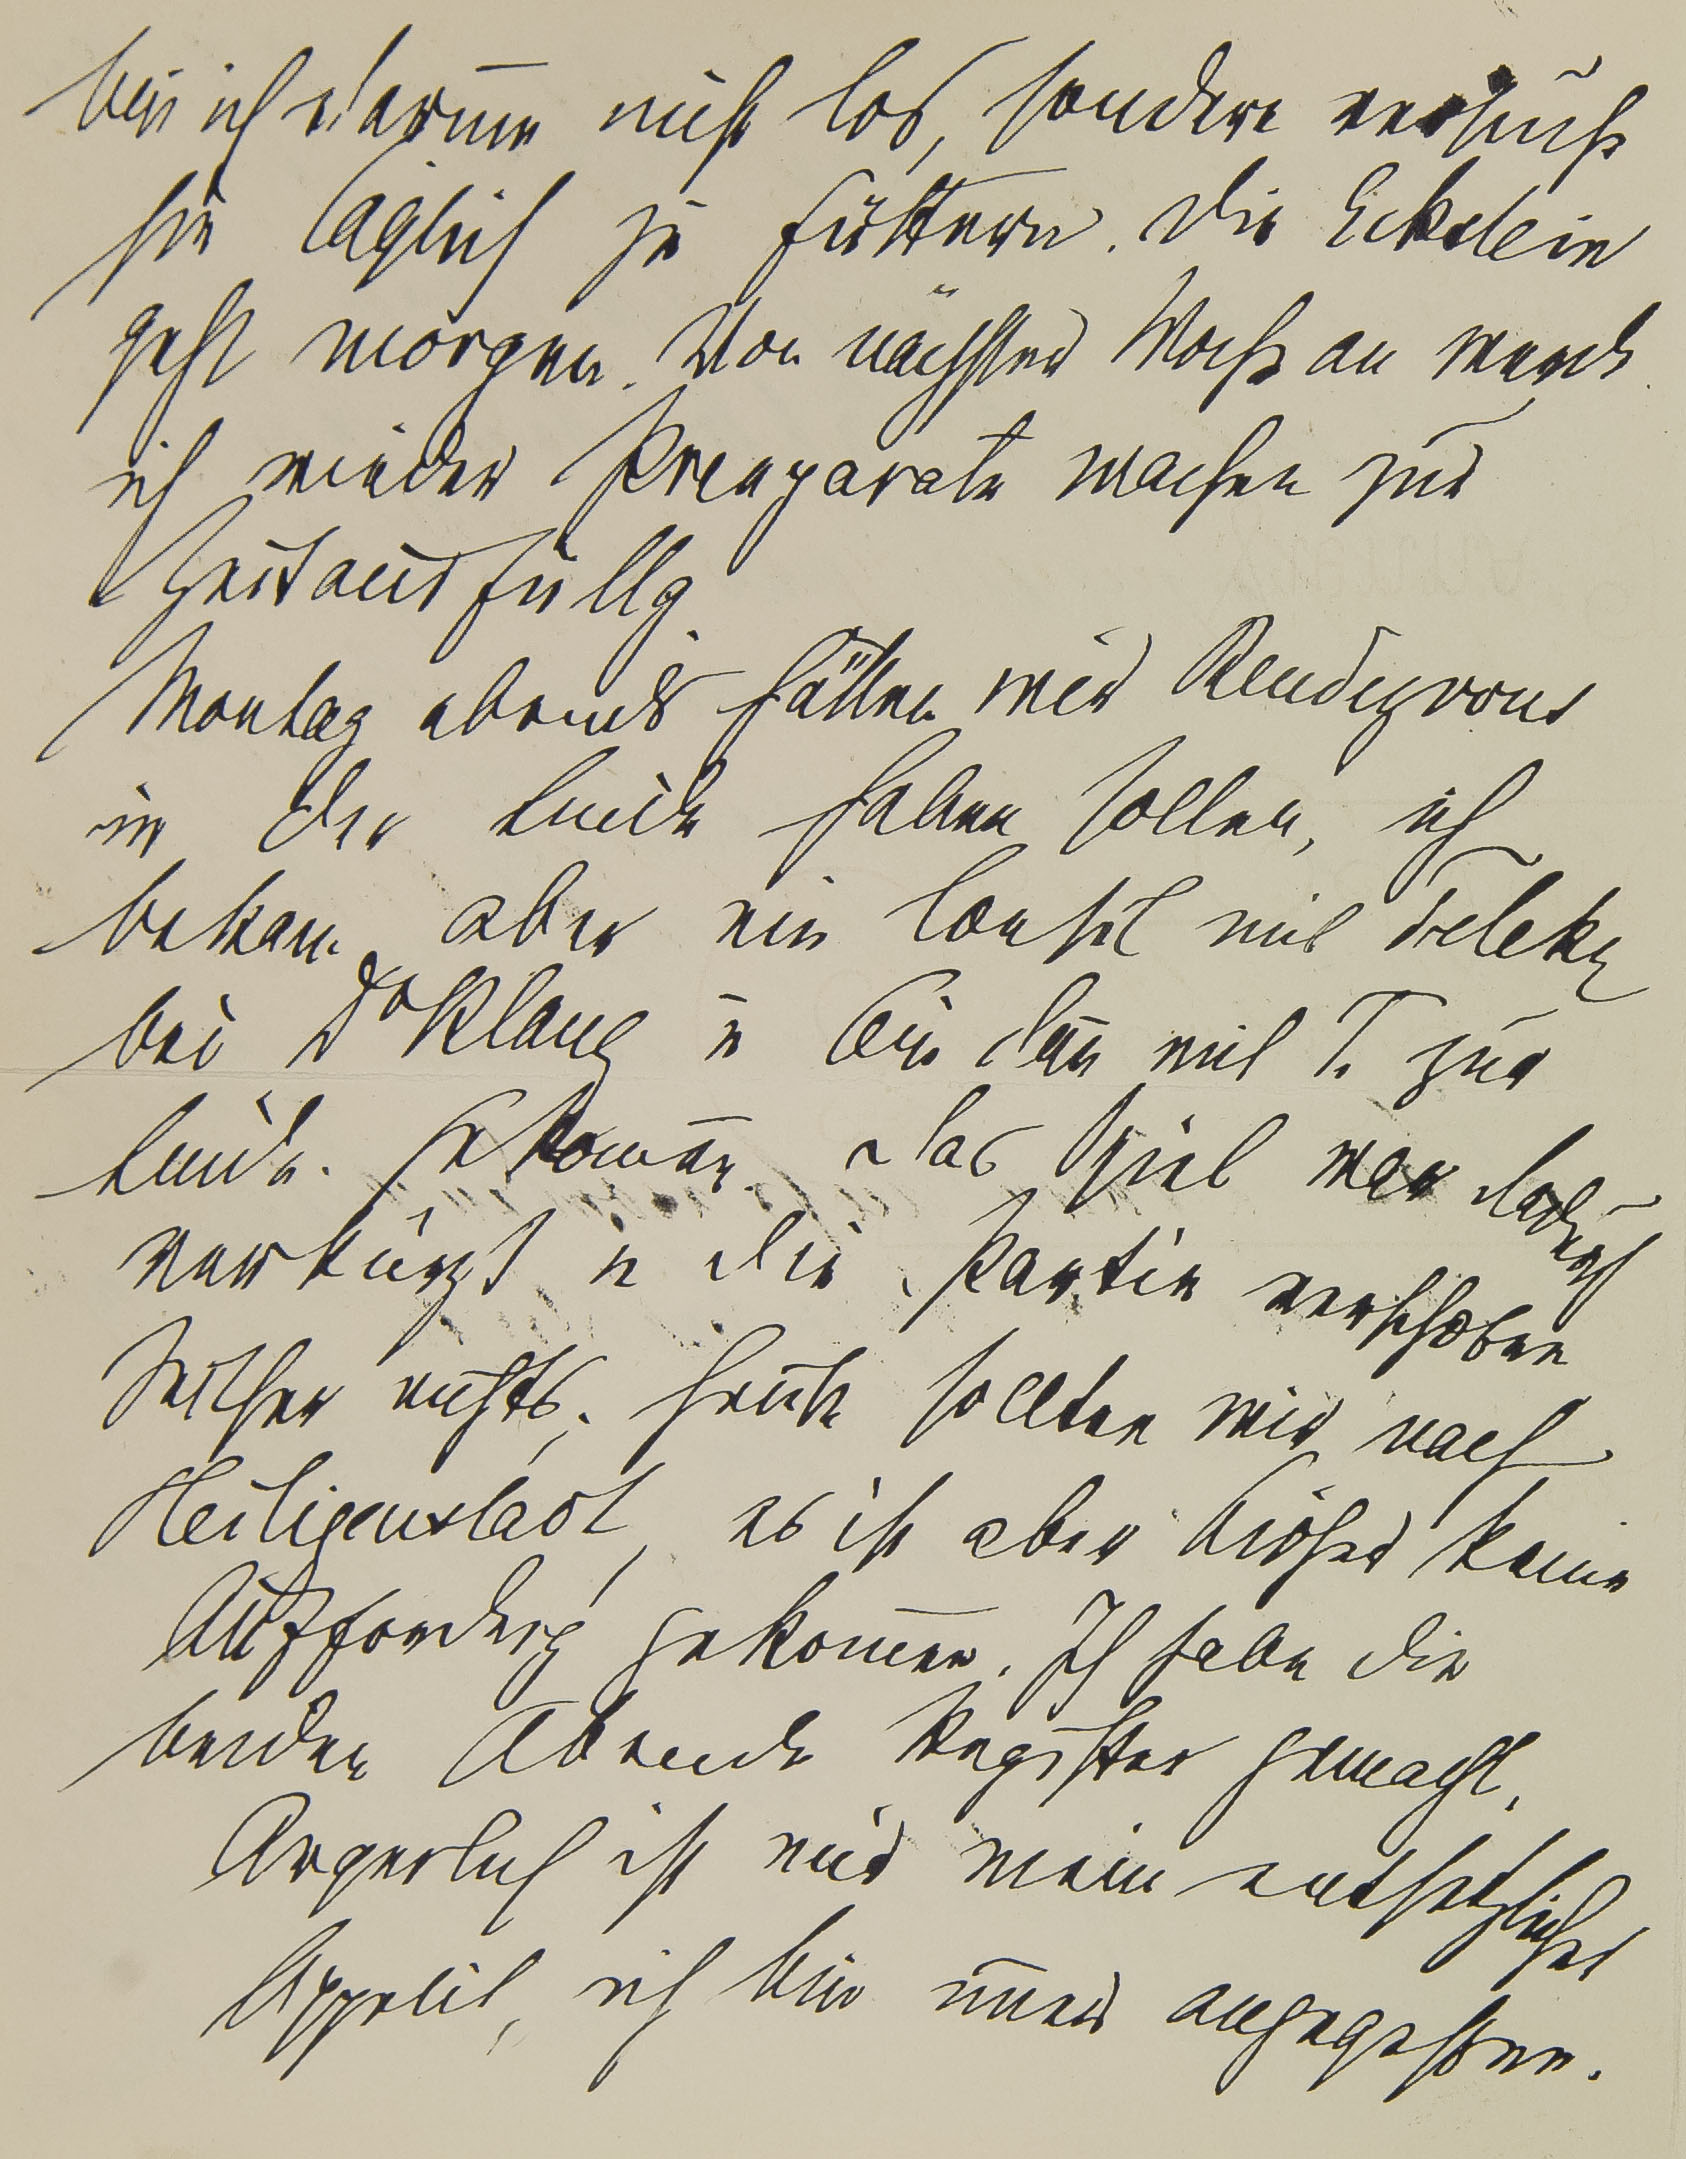 bin ich darum nicht los, sondern versuche
sie täglich zu füttern. Die Eckstein
geht morgen. Von nächster Woche an werde
ich wieder Praeparate machen zur
Zeitausfüllg.
Montag abends hätten wir Rendezvous
in der haben sollen, ich
bekam aber ein Consil mit Teleky
bei Dr Klang u bin dann mit T. zur
gekommen. Das Spiel war dadurch
verkürzt u die Partie verschoben
Seither nichts; heute sollten wir nach
Heiligenstadt, es ist aber bisher keine
Aufforderg gekommen. Ich habe die
beiden Abende Register gemacht.
Ärgerlich ist mir mein entsetzlicher
Appetit, ich bin immer angegessen.